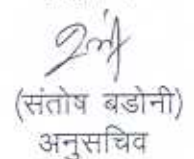 (संतोष बडोनी)
अनुसचिव